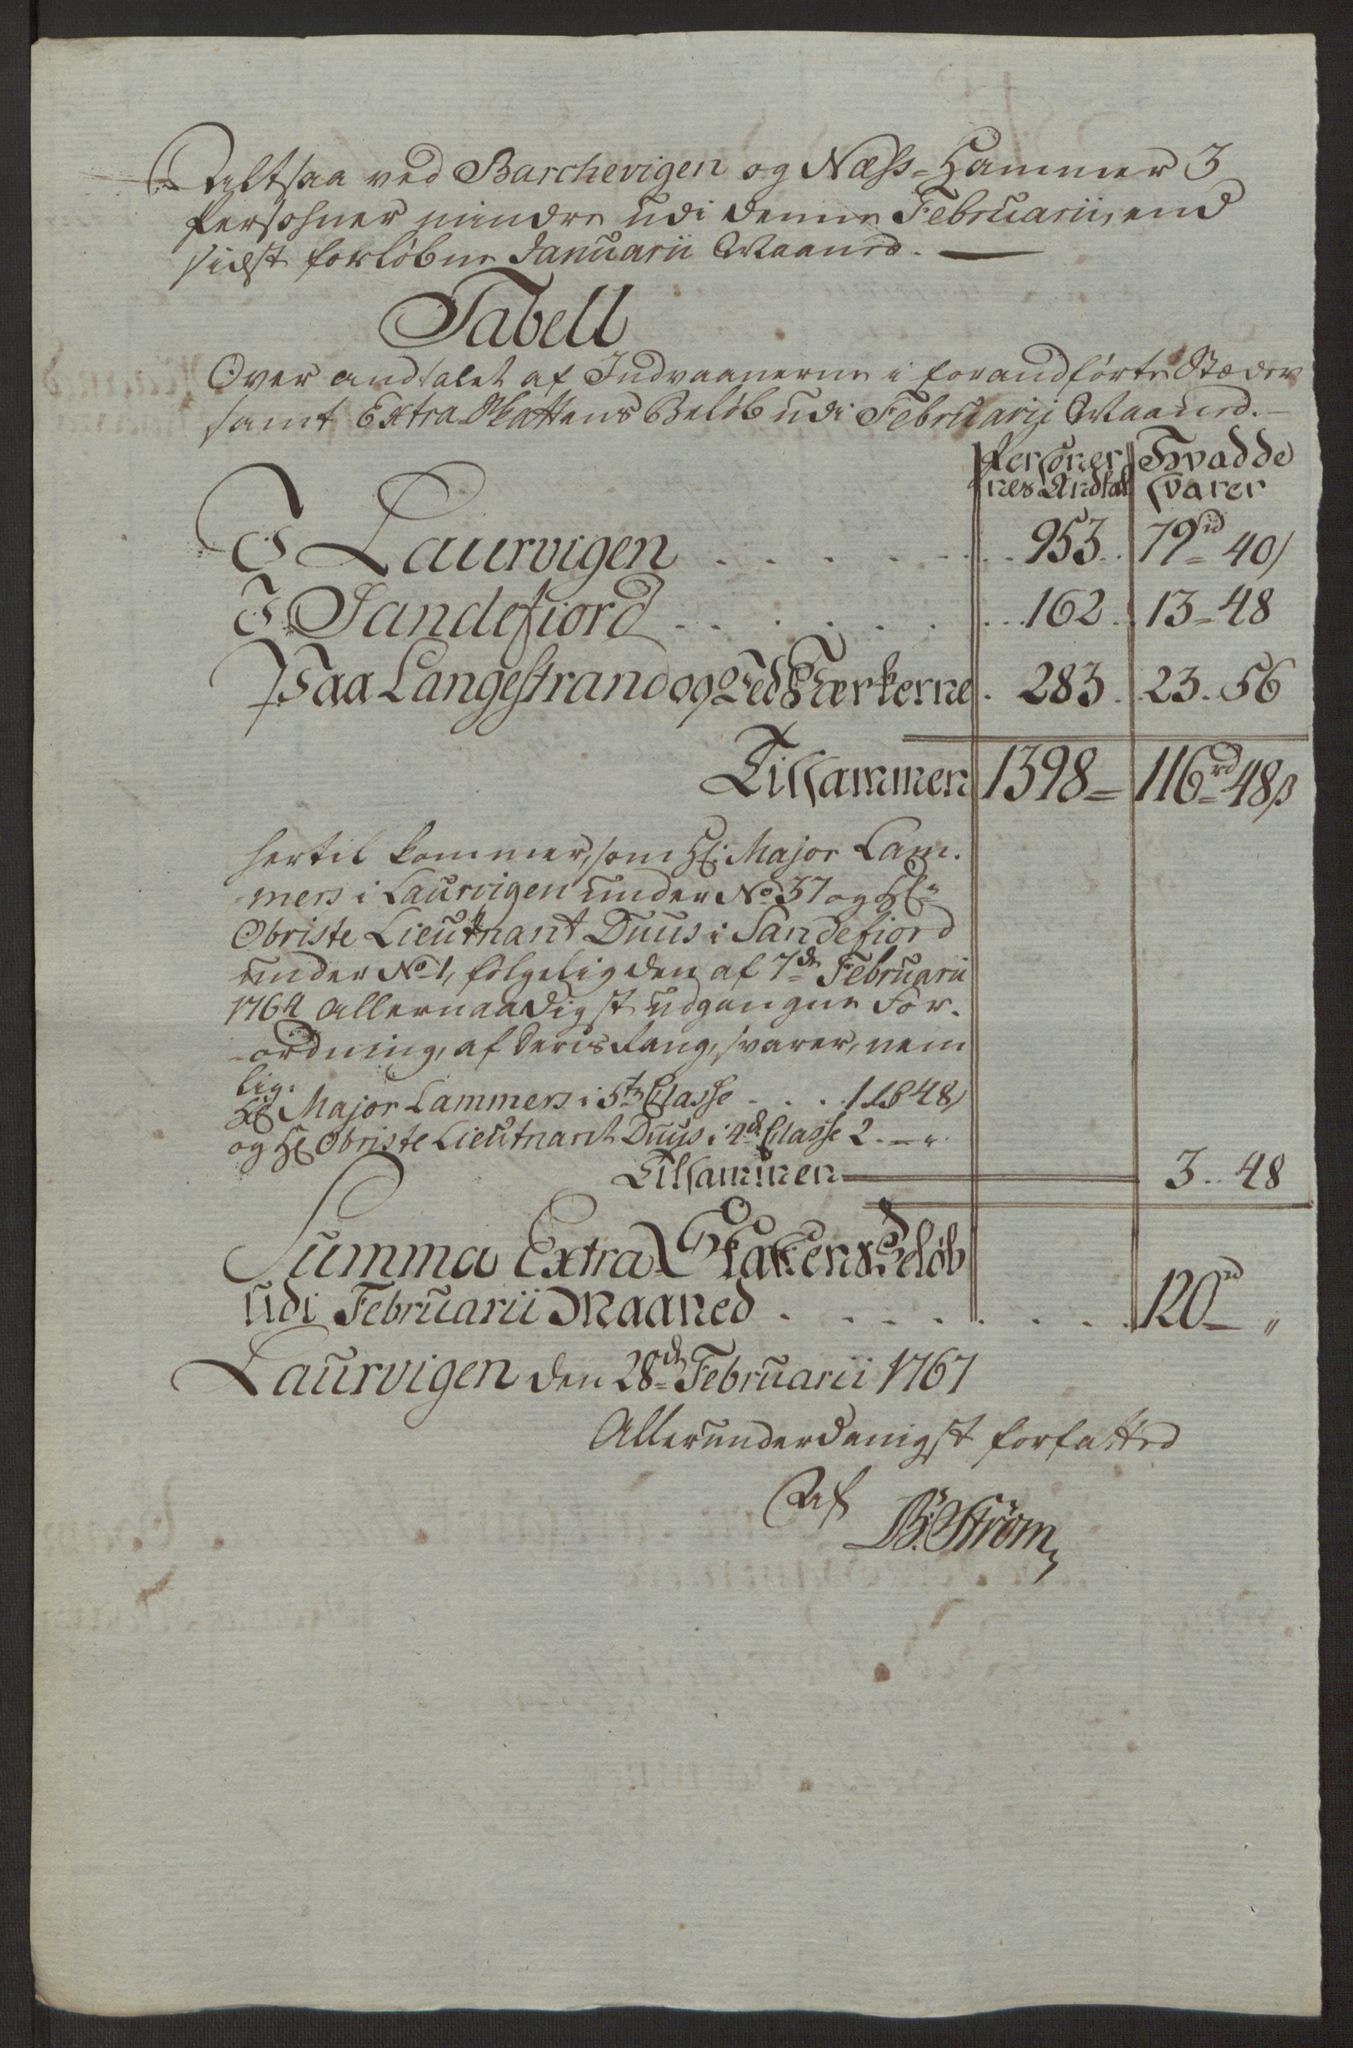 Altsaa ved Barchevigen og Næss-Hammer 3
Persohner mindre udi denne Februarii, end
sidst forløbne Januarii Maaned.
Tabell
Over andtalet af Indvaanerne i forandførte Stæder
samt Extra Skattens Beløb udi Februarii Maaned.
Personer Hvadde
nes Andtal svarer
I Laurvigen . . . . . . . 953. 79 rd 40 s
I Sandefiord . . . . . . . 162. 13 - 48
Paa Langestrand og Ved Værkerne . 283. 23. 56
Tilsammen 1398 = 116 rd 48 β
hertil kommer, som Hr. Major Lam-
mers i Laurvigen under No 37 og Hr.
Obriste Lieutnant Duus i Sandefiord
under No 1, følgelig den af 7de Februarii
1764 allernaadigst udgangne For-
ordning, af deris Rang, svarer, nem
lig:
Hr. Major Lammers i 5te Classe . . . 1 rd 48 s
og Hr. Obriste Lieutnant Duus i 4de Classe 2. — "
Tilsammen 3.. 48
Summa Extra Skattens Beløb
udi Februarii Maaned . . . . . . . 120 rd "
Laurvigen den 28de Februarii 1767
Allerunderdanigst forfatted
Af
B: Strøm